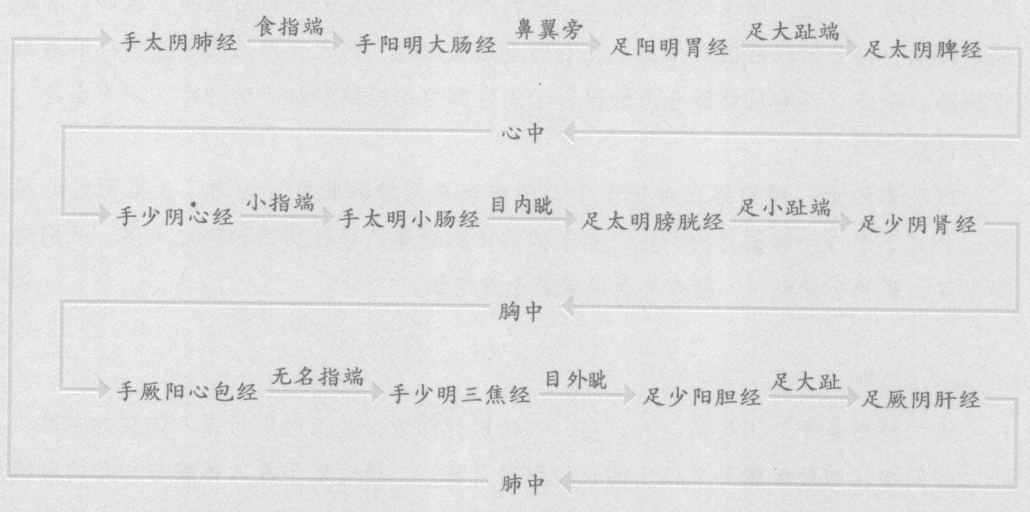 手太阴肺经 食指端 手阳明大肠经 鼻翼旁 足阳明胃经 足大趾端 足太阴脾经
心中
手少阴心经 小指端 手太明小肠经 目内眦 足太明膀胱经 足小趾端 足少阴肾经
胸中
手厥阳心包经 无名指端 手少明三焦经 目外眦 足少阳胆经 足大趾 足厥阴肝经
肺中